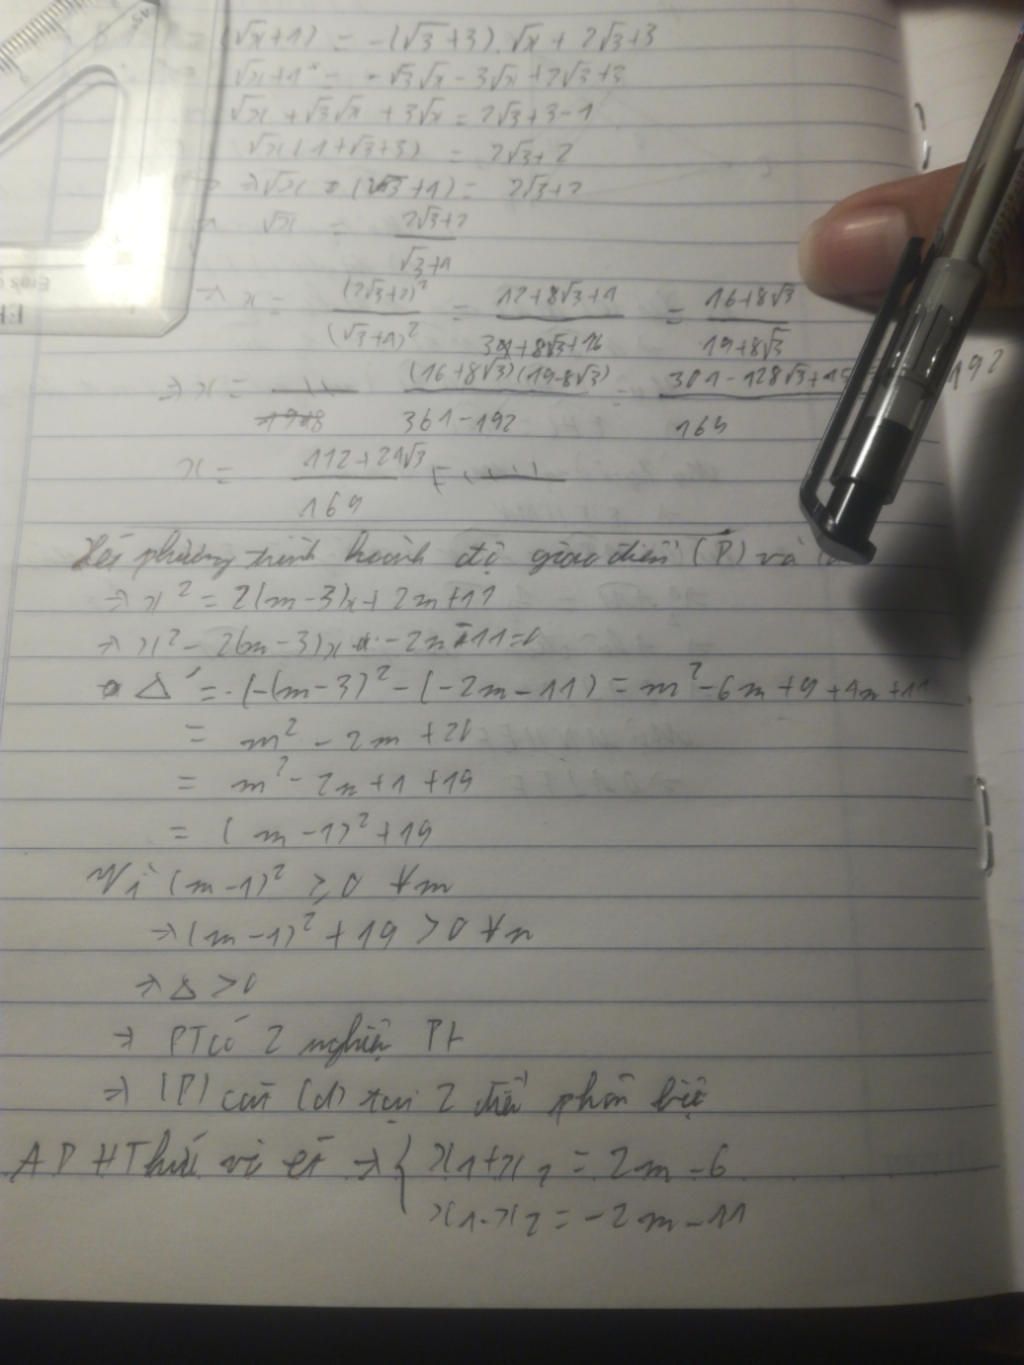 (√x+1) = -(√3+3).√x + 2√3+3
√x+1 = -√3√x - 3√x + 2√3+3
√x + √3√x + 3√x = 2√3+3-1
√x(1+√3+3) = 2√3+2
⇒ √x (√3+4) = 2√3+2
√x = (2√3+2)/(√3+4)
⇒ x = (2√3+2)²/(√3+4)² = (12+8√3+4)/(3+8√3+16) = (16+8√3)/(19+8√3)
⇒ x = (16+8√3)(19-8√3)/(361-192) = 192
169
x = (112+24√3)/169
Xét phương trình hoành độ giao điểm (P) và
⇒ x² = 2(m-3)x + 2m+11
⇒ x² - 2(m-3)x - 2m-11=0
Δ' = (-(m-3)² - (-2m-11) = m² - 6m + 9 + 4m + 11
= m² - 2m + 20
= m² - 2m + 1 + 19
= (m-1)² + 19
Vì (m-1)² ≥ 0 ∀m
⇒ (m-1)² + 19 > 0 ∀m
⇒ Δ > 0
⇒ PT có 2 nghiệm Pt
⇒ (P) cắt (d) tại 2 điểm phân biệt
AD HThức vi ét ⇒ { x1+x2 = 2m-6
x1.x2 = -2m-11